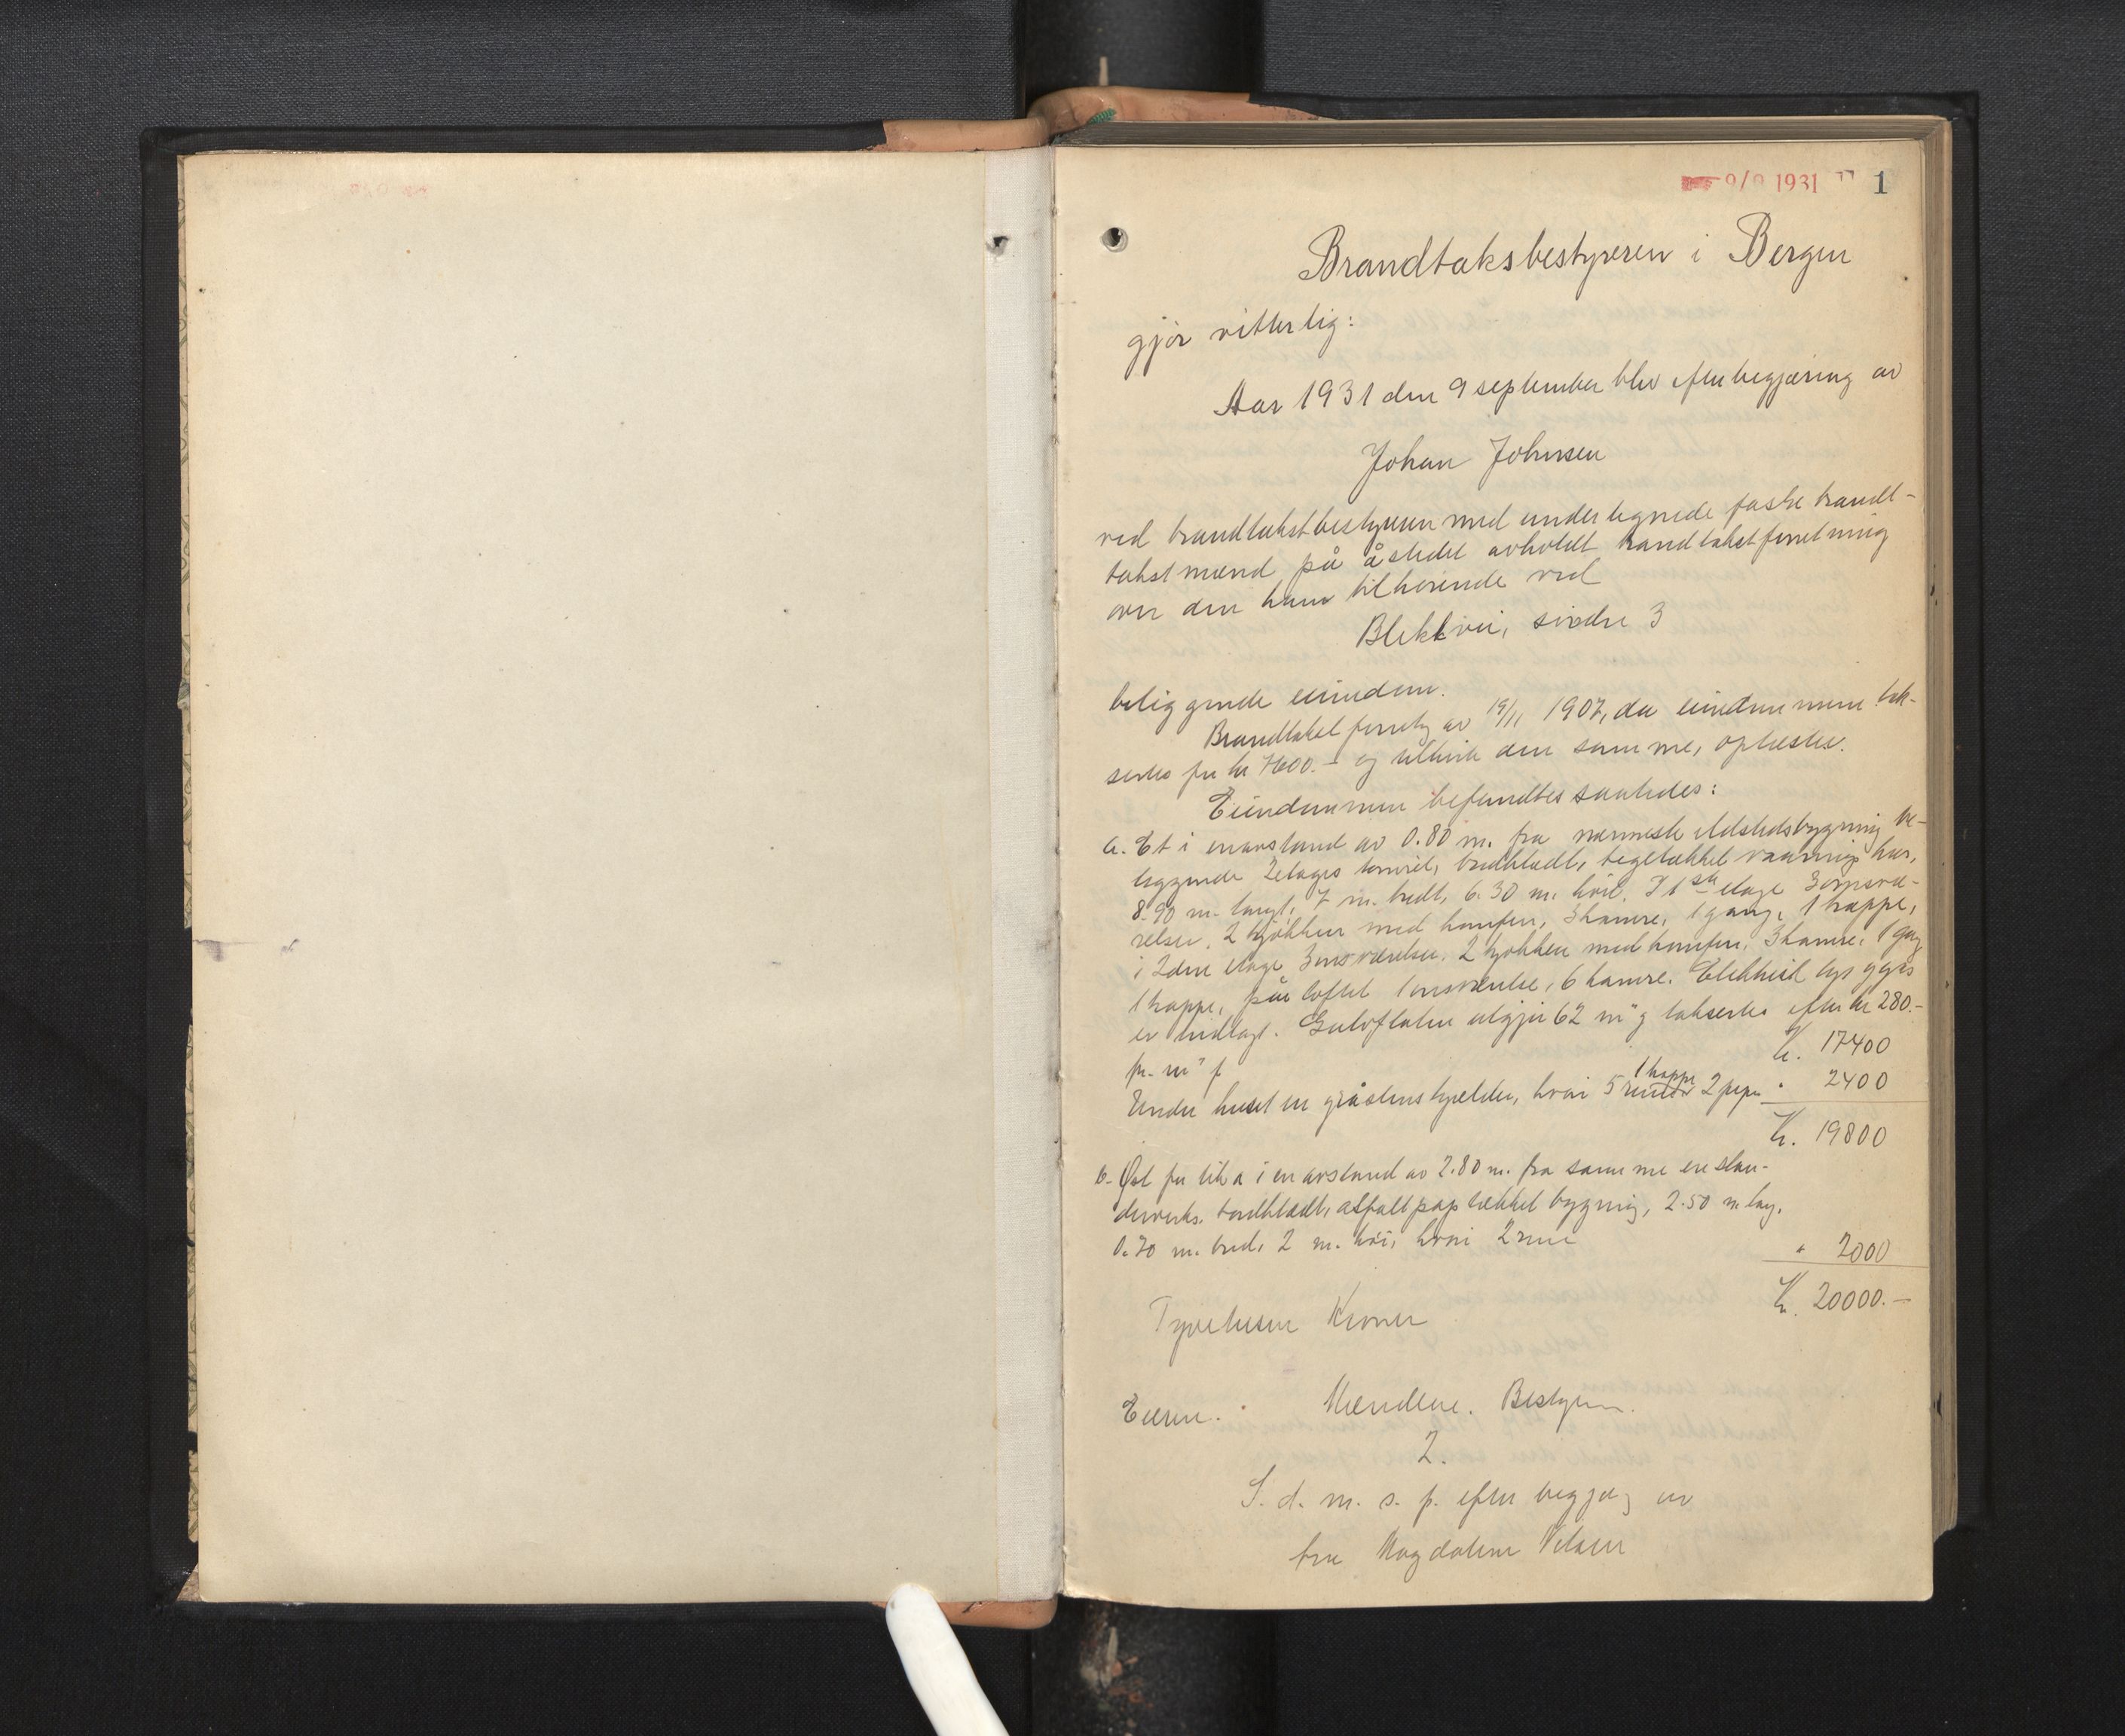 9/9 1931 1
Brandtaksbestyreren i Bergen
gjør vitterlig:
Aar 1931 den 9 september blev efter begjæring av
Johan Johnsen
ved brandtakstbestyreren med undertegnede faste brandt-
takstmænd på åstedet avholdt brandtakstforretning
over den ham tilhørende ved
Blekevei, søndre 3
beliggende eiendom.
Brandtakst forretn av 19/11 1907, da eiendommen tak-
sertes for kr 7600.- og utkirk den samme, oplæstes.
Eiendommen befandtes saaledes:
a. Et i en avstand av 0.80 m. fra nærmeste ildstedsbygning be-
liggende 2 etages tømret, bordklædt, teglækket vaanings hus,
8.90 m. langt, 7 m. bredt, 6.30 m. høit. I 1ste etage 3 omsvæ-
relser, 2 kjøkken med komfur, 3 kamre, 1 gang, 1 trappe,
i 2den etage 3 omsværelser, 2 kjøkken med komfur, 3 kamre, 1 gag
1 trappe, på loftet 1 omsværelse, 6 kamre. Elektrisk lys og gas
er indlagt. Gulvflaten utgjør 62 m² og takseres efter kr 280.-
pr. m² f
Kr. 17400
Under huset en gråstenskjelder, hvori 5 rum 1 trappe 2 piper " 2400
Kr. 19800
b. Øst for litr a i en avstand av 2.80 m. fra samme en stan-
derverks. bordklædt, asfaltpaptækket bygning, 2.50 m. lang,
0.70 m. bred, 2 m. høi, hvori 2 rum
" 2000
Kr. 20000.-
Tyvetusen Kroner
Eieren. Mændene. Bestyreren.
2.
S. d. m. s. f. efter begjæg av
fru Magdalene Nilsen